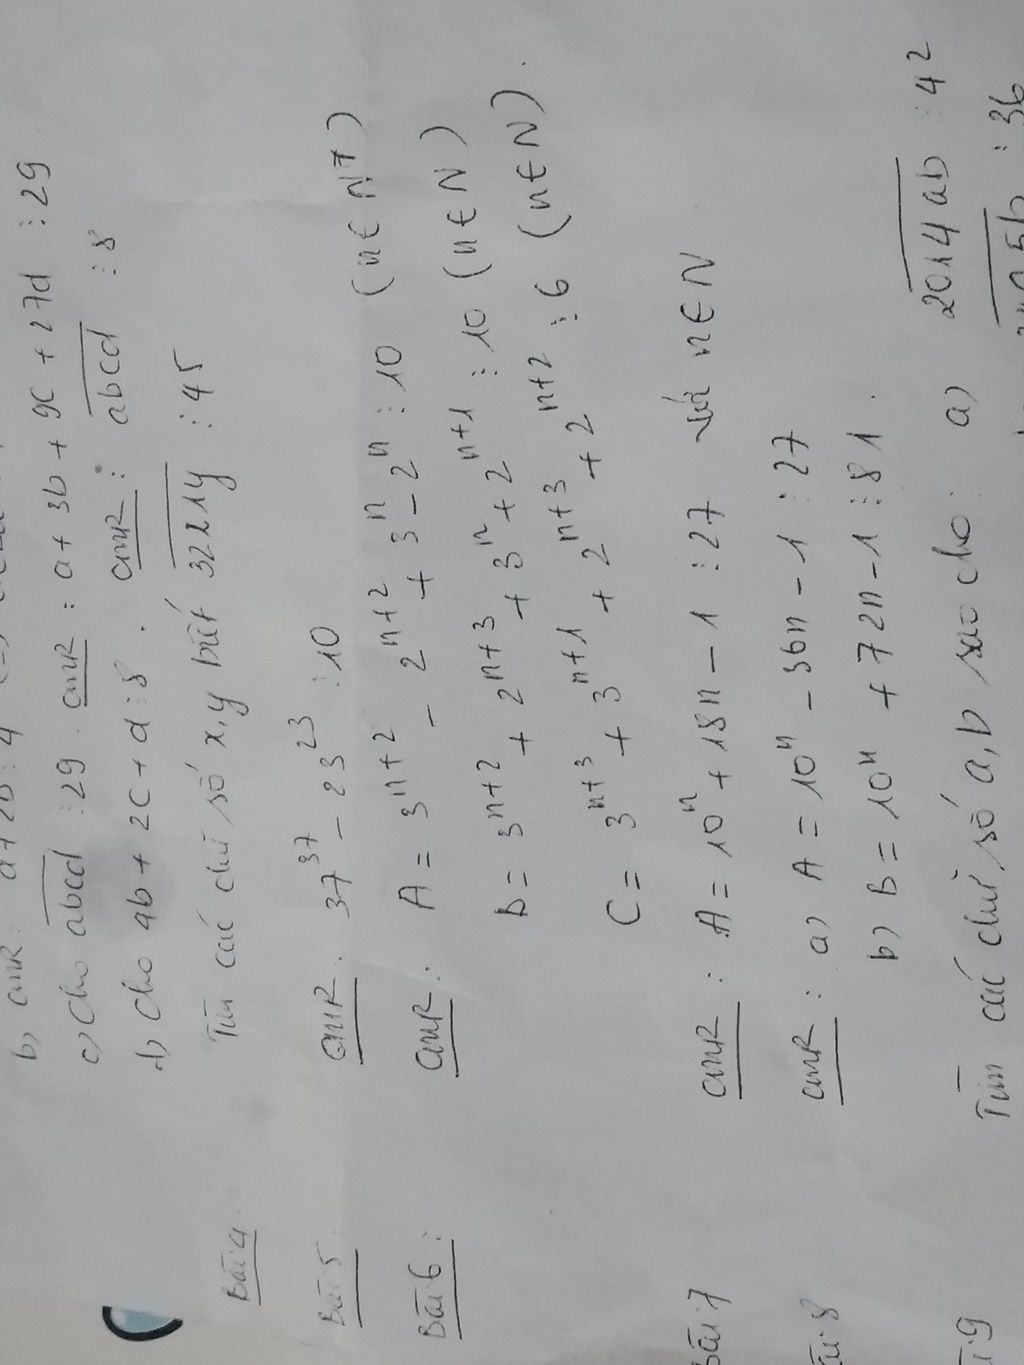 b) CMR: a + 2b ⋮ 4
c) Cho abcd ⋮ 29. CMR: a + 3b + 9c + 27d ⋮ 29
d) Cho 4b + 2c + d ⋮ 8. CMR: abcd ⋮ 8
Bài 4. Tìm các chữ số x, y biết 32x1y ⋮ 45
Bài 5. CMR. 37³⁷ - 23²³ ⋮ 10
Bài 6: CMR: A = 3ⁿ⁺² - 2ⁿ⁺² + 3ⁿ - 2ⁿ ⋮ 10 (n ∈ N*)
B = 3ⁿ⁺² + 2ⁿ⁺³ + 3ⁿ + 2ⁿ⁺¹ ⋮ 10 (n ∈ N)
C = 3ⁿ⁺³ + 3ⁿ⁺¹ + 2ⁿ⁺³ + 2ⁿ⁺² ⋮ 6 (n ∈ N).
Bài 7 CMR: A = 10ⁿ + 18n - 1 ⋮ 27 với n ∈ N
Bài 8 CMR: a) A = 10ⁿ - 36n - 1 ⋮ 27
b) B = 10ⁿ + 72n - 1 ⋮ 81.
9 Tìm các chữ số a, b sao cho: a) 2014ab ⋮ 42
⋮ 36